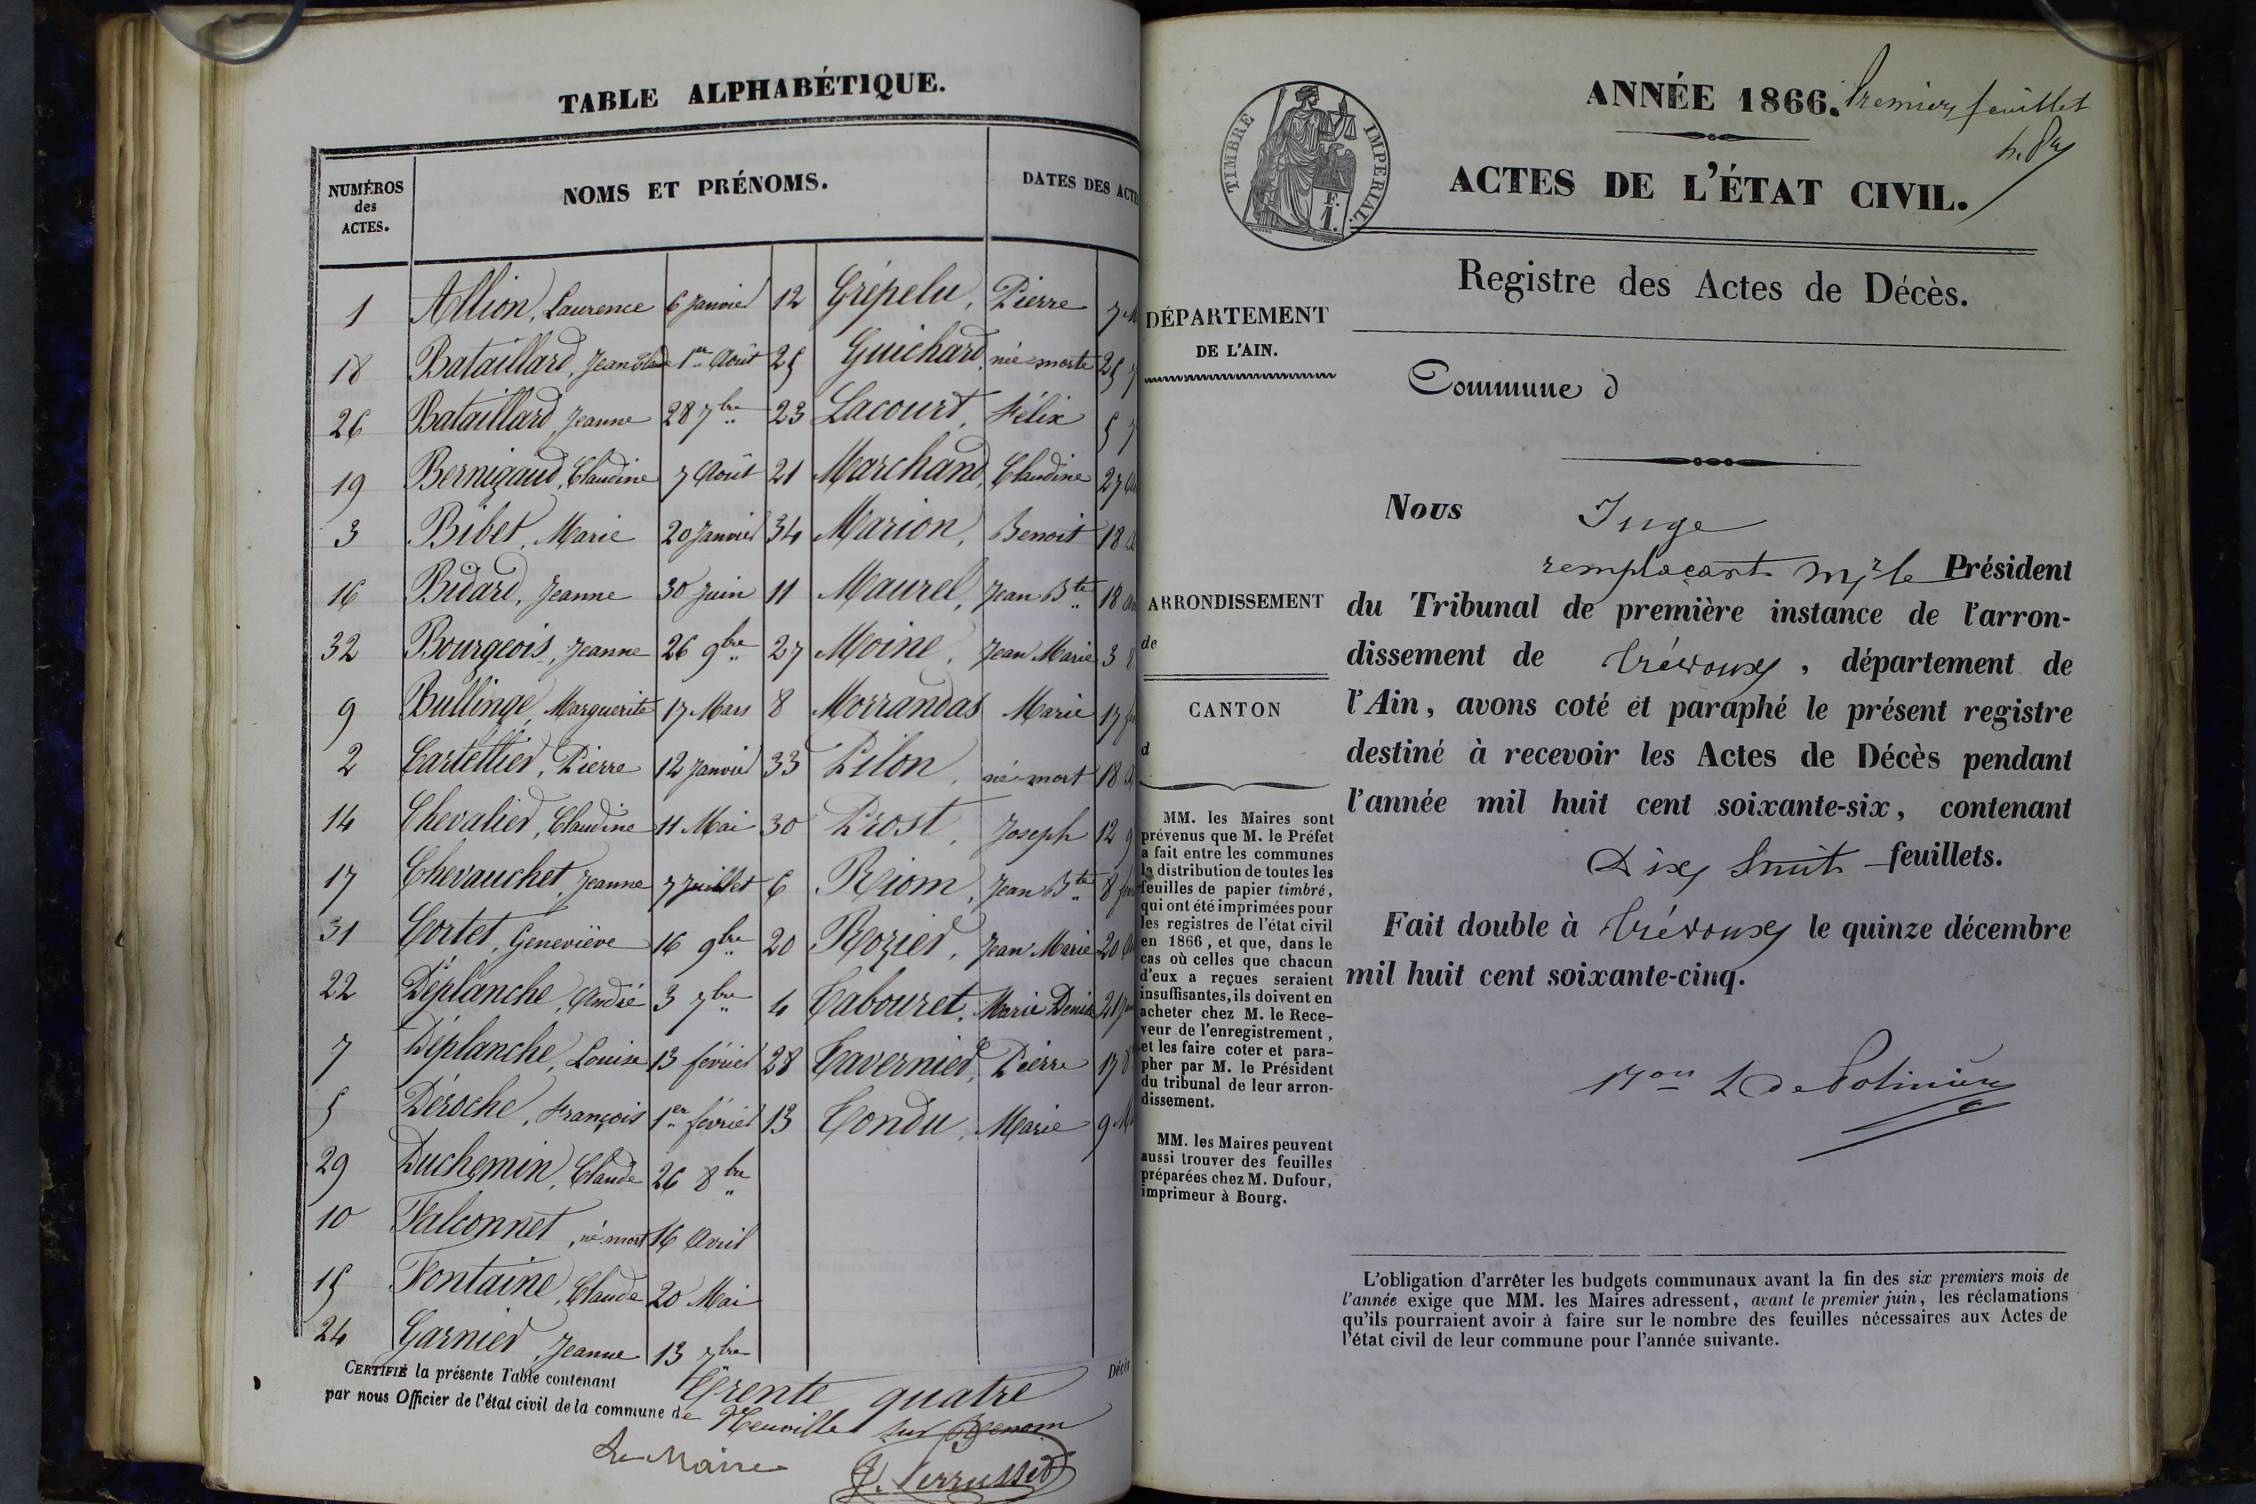 TABLE ALPHABÉTIQUE.
NUMÉROS
des
ACTES.
NOMS ET PRÉNOMS.
DATES DES ACTE
1 Allion, Laurence 6 Janvier 12 Grépelu, Pierre 7 M
18 Bataillard, Jean Claude 1er Août 25 Guichard, née morte 25 7
26 Bataillard, Jeanne 28 7bre 23 Lacourt, Félix 5 7
19 Bernigaud, Claudine 7 Août 21 Marchand, Claudine 27 Ao
3 Bibet, Marie 20 Janvier 34 Marion, Benoit 18
16 Bidard, Jeanne 30 Juin 11 Maurel, Jean Bte 18 a
32 Bourgeois, Jeanne 26 9bre 27 Moine, Jean Marie 3 8
9 Bullinge, Marguerite 17 Mars 8 Morrandas Marie 17 fev
2 Cartellier, Pierre 12 Janvier 33 Pilon, né-mort 18
14 Chevalier, Claudine 11 Mai 30 Prost, Joseph 12 9
17 Chevauchet, Jeanne 7 Juillet 6 Riom, Jean Bte 8 fev
31 Cortet, Geneviève 16 9bre 20 Rozier, Jean Marie 20 Ao
22 Déplanche, André 3 7bre 4 Tabouret, Marie Denise 21 Jan
7 Déplanche, Louise 13 février 28 Tavernier, Pierre 17 8
5 Déroche, François 1er février 13 Tondu, Marie 9 M
29 Duchemin, Claude 26 8bre
10 Falconnet, né-mort 16 Avril
15 Fontaine, Claude 20 Mai
24 Garnier, Jeanne 13 7bre
CERTIFIÉ la présente Table contenant Trente quatre Décès
par nous Officier de l'état civil de la commune de Neuville sur Renom
Le Maire
ANNÉE 1866. Premier feuillet
TIMBRE IMPÉRIAL.
F.
1.
ACTES DE L'ÉTAT CIVIL.
Registre des Actes de Décès.
DÉPARTEMENT
DE L'AIN.
Commune d
ARRONDISSEMENT
de
CANTON
d
MM. les Maires sont
prévenus que M. le Préfet
a fait entre les communes
la distribution de toutes les
feuilles de papier timbré,
qui ont été imprimées pour
les registres de l'état civil
en 1866, et que, dans le
cas où celles que chacun
d'eux a reçues seraient
insuffisantes, ils doivent en
acheter chez M. le Rece-
veur de l'enregistrement,
et les faire coter et para-
pher par M. le Président
du tribunal de leur arron-
dissement.
MM. les Maires peuvent
aussi trouver des feuilles
préparées chez M. Dufour,
imprimeur à Bourg.
Nous Juge
remplaçant Mr le Président
du Tribunal de première instance de l'arron-
dissement de Trévoux, département de
l'Ain, avons coté et paraphé le présent registre
destiné à recevoir les Actes de Décès pendant
l'année mil huit cent soixante-six, contenant
Dix huit feuillets.
Fait double à Trévoux le quinze décembre
mil huit cent soixante-cinq.
L'obligation d'arrêter les budgets communaux avant la fin des six premiers mois de
l'année exige que MM. les Maires adressent, avant le premier juin, les réclamations
qu'ils pourraient avoir à faire sur le nombre des feuilles nécessaires aux Actes de
l'état civil de leur commune pour l'année suivante.